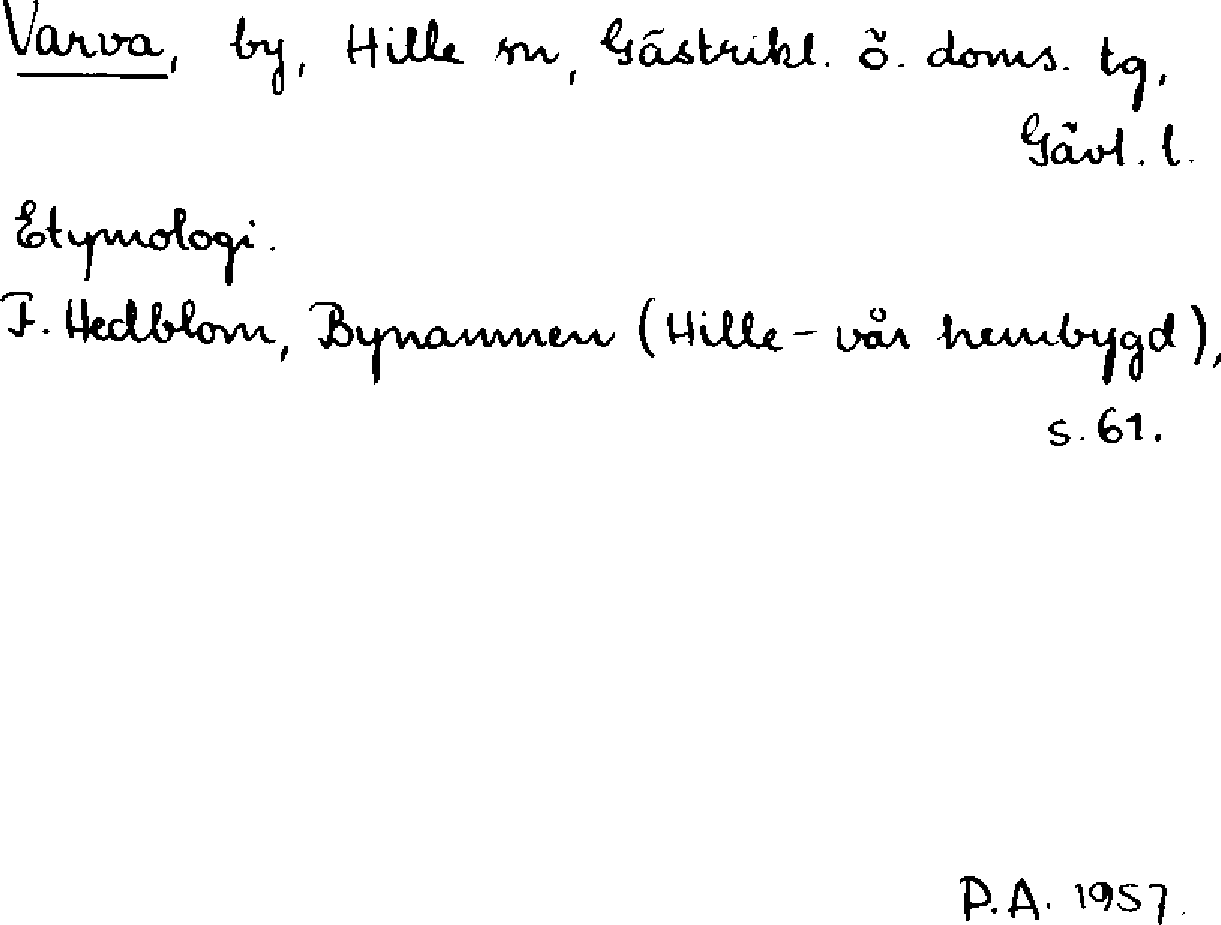 Varva, by, Hille sn, Gästrikl. ö. doms. tg,
Gävl. l.
Etymologi.
F. Hedblom, Bynamnen (Hille - vår hembygd),
s. 61.
P.A. 1957.